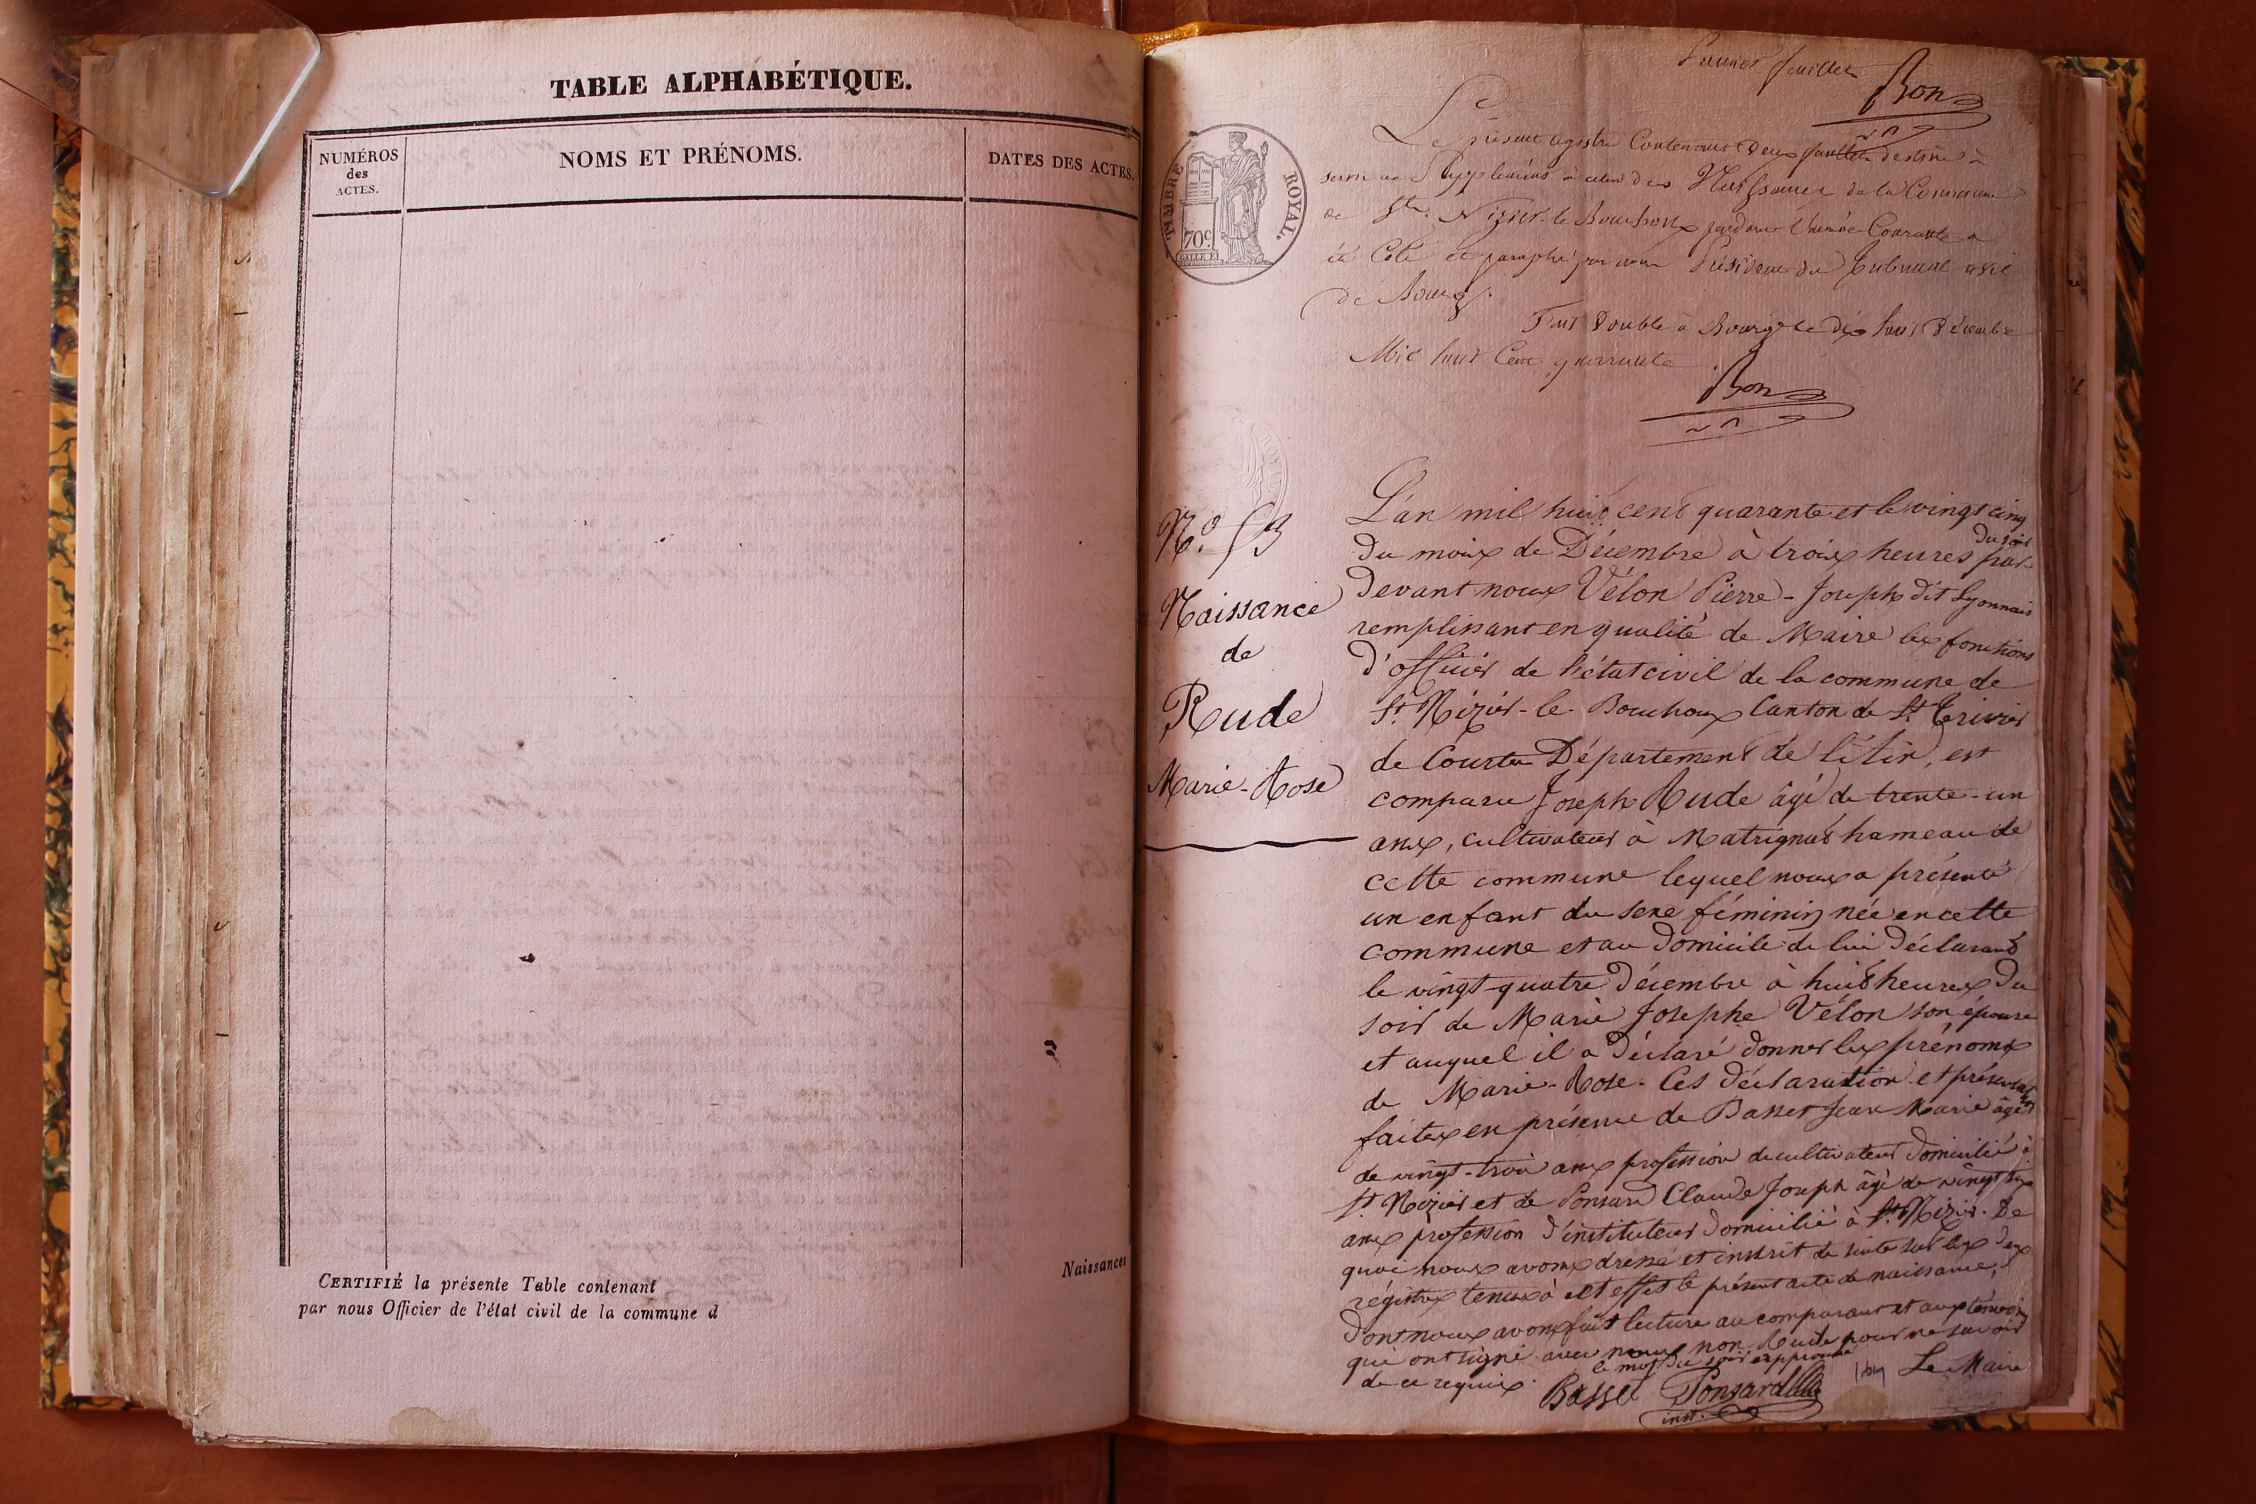 TABLE ALPHABÉTIQUE.
NUMÉROS
des
ACTES.
NOMS ET PRÉNOMS.
DATES DES ACTES.
CERTIFIÉ la présente Table contenant
par nous Officier de l'état civil de la commune d
Naissances
feuillet
Bon
TIMBRE ROYAL.
70c.
Le présent registre Contenant Deux feuillets destiné à
servir de Supplément à celui des Naissances de la Commune
de St. Nizier-le Bouchoux pendant l'année Courante a
été Coté et paraphé par nous Président du Tribunal civil
de Bourg.
Fait Double à Bourg le dix huit Décembre
Mil huit Cent quarante
Bon
No. 53
Naissance
de
Rude
Marie-Rose
L'an mil huit cent quarante et le vingt cinq
du moix de Décembre à troix heures du soir par
devant noux Vélon Pierre-Joseph dit Lyonnais
remplissant en qualité de Maire lex fonctions
d'officier de l'état civil de la commune de
St. Nizier-le-Bouchoux Canton de St. Trivier
de Courtes Département de l'Ain, est
comparu Joseph Rude âgé de trente-un
anx, cultivateur à Matrignat hameau de
cette commune lequel noux a présenté
un enfant du sexe féminin née en cette
commune et au domicile de lui déclarant
le vingt-quatre Décembre à huit heurex du
soir de Marie Josephe Vélon son épouse
et auquel il a déclaré donner lex prénomx
de Marie-Rose. Ces déclaration et présentation
faitex en présence de Basset Jean Marie âgé
de vingt-trois anx profession de cultivateur domicilié à
St. Nizier et de Ponsard Claude Joseph âgé de vingt six
anx profession d'instituteur domicilié à St. Nizier. De
quoi noux avonx dressé et inscrit de suite sur lex deux
régistrex tenux à cet effet le présent acte de naissance,
dont noux avonx fait lecture au comparant et aux témoins
qui ont signé avec noux non Rude pour ne savoir
de ce requix. le mot du soir approuvé
Basset Ponsard Le Maire
inst.